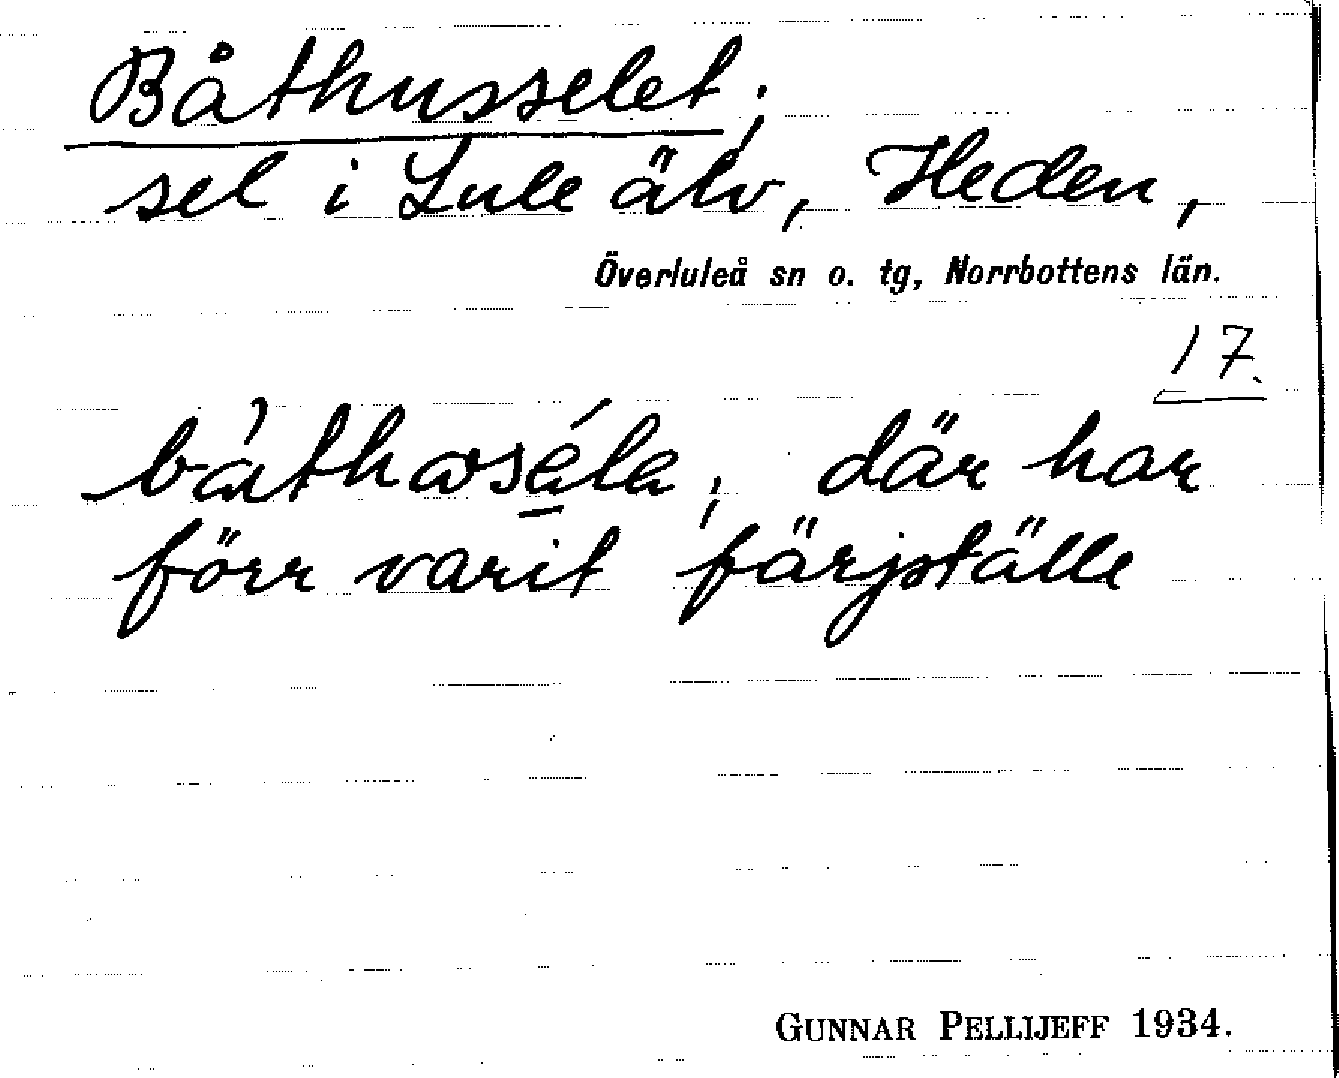 Båthusselet;
sel i Lule älv, Heden,
Överluleå sn o. tg, Norrbottens län.
17.
där har
förr varit färjställe
GUNNAR PELLIJEFF 1934.